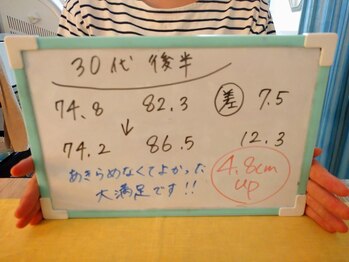 30代 後半
74.8 82.3 差 7.5
↓
74.2 86.5 12.3
あきらめなくてよかった
大満足です!!
4.8cm
up